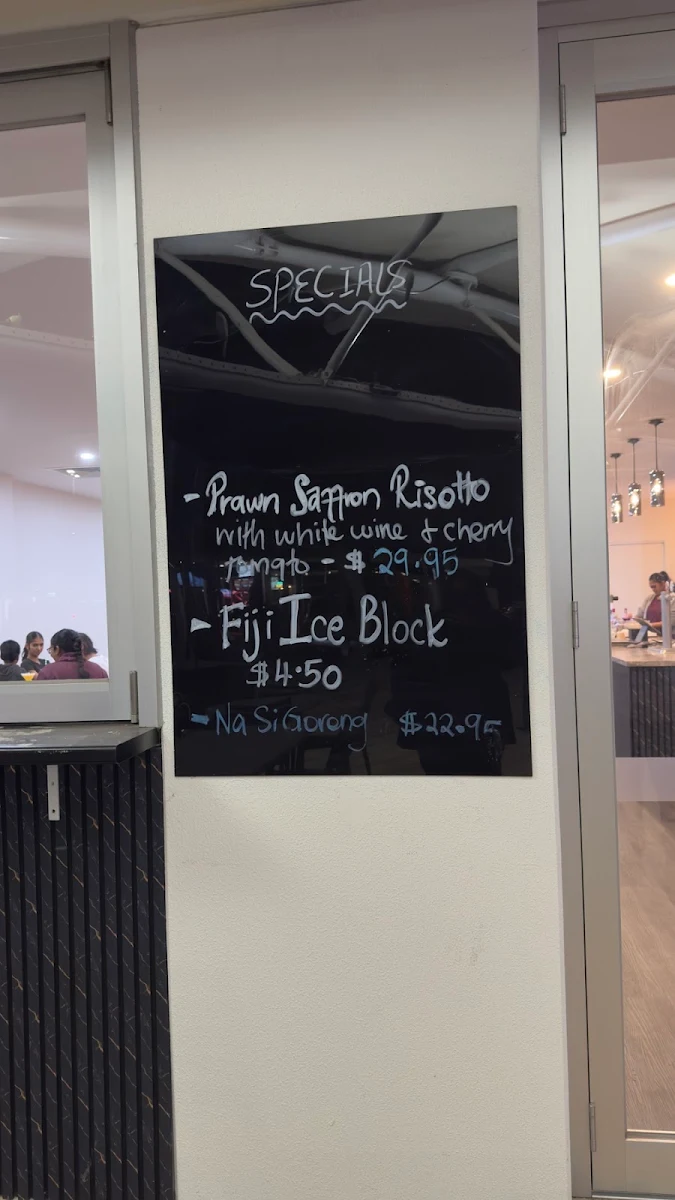 SPECIALS
- Prawn Saffron Risotto
with white wine & cherry
tomato - $ 29.95
- Fiji Ice Block
$4.50
- Na Si Goreng $22.95